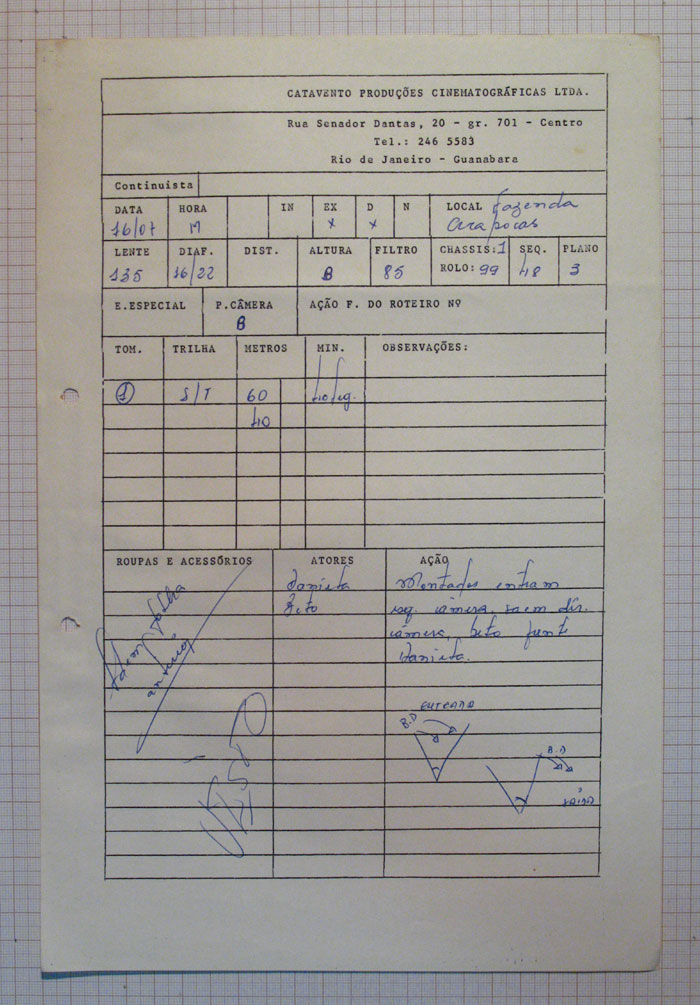 CATAVENTO PRODUÇÕES CINEMATOGRÁFICAS LTDA.
Rua Senador Dantas, 20 - gr. 701 - Centro
Tel.: 246 5583
Rio de Janeiro - Guanabara
Continuista
DATA HORA IN EX D N LOCAL fazenda
16/07 M x x
LENTE DIAF. DIST. ALTURA FILTRO CHASSIS:1 SEQ. PLANO
135 16/22 B 85 ROLO: 99 48 3
E.ESPECIAL P.CÂMERA AÇÃO F. DO ROTEIRO Nº
B
TOM. TRILHA METROS MIN. OBSERVAÇÕES:
1 S/T 60 40 seg.
40
ROUPAS E ACESSÓRIOS ATORES AÇÃO
Danieta Montados entram
Beto esq. câmera, saem dir.
câmera, beto
Danieta.
Idem folha
anterior
ENTRADA
B.D
B.D
SAÍDA